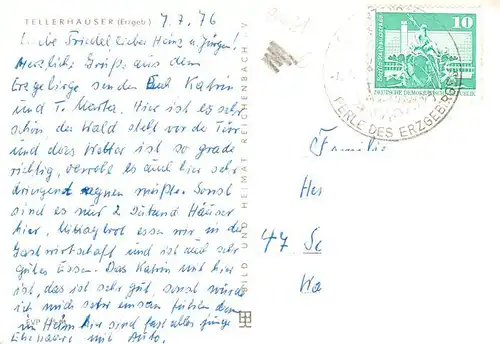 TELLERHÄUSER (Erzgeb.)
7.7.76
Liebe Friedel lieber Heinz u. Jürgen!
Herzliche Grüße aus dem
Erzgebirge senden Euch Katrin
und T. Marta. Hier ist es sehr
schön der Wald steht vor der Tür
und das Wetter ist so grade
richtig, obwohl es auch hier sehr
dringend regnen müßte. Sonst
sind es nur 2 Häuser
hier, Mittagbrot essen wir in der
Gastwirtschaft und ist auch sehr
gutes Essen. Das Katrin mit hier
ist, das ist sehr gut, sonst würde
ich mich sehr einsam fühlen denn
im Heim hier sind fast alles junge
Eheleute mit Auto.
BILD UND HEIMAT REICHENBACH V
10
DEUTSCHE DEMOKRATISCHE REPUBLIK
PERLE DES ERZGEBIRGES
Familie
Her
47 Sc
Wa
EVP